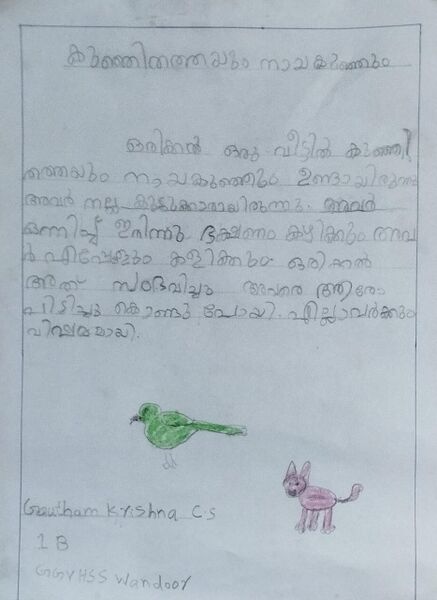 കുഞ്ഞിതത്തയും നായകുഞ്ഞും
ഒരിക്കൽ ഒരു വീട്ടിൽ കുഞ്ഞി
തത്തയും നായകുഞ്ഞും ഉണ്ടായിരുന്നു
അവർ നല്ല കൂട്ടുക്കാരായിരുന്നു. അവർ
ഒന്നിച്ച് ഇരിന്നു ഭക്ഷണം കഴിക്കും അവ
ർ എപ്പോളും കളിക്കും. ഒരിക്കൽ
അത് സംഭവിച്ചു അവരെ ആരോ
പിടിച്ചു കൊണ്ടു പോയി. എല്ലാവർക്കും
വിഷമമായി.
Gautham Krishna C.S
1 B
GGVHSS Wandoor